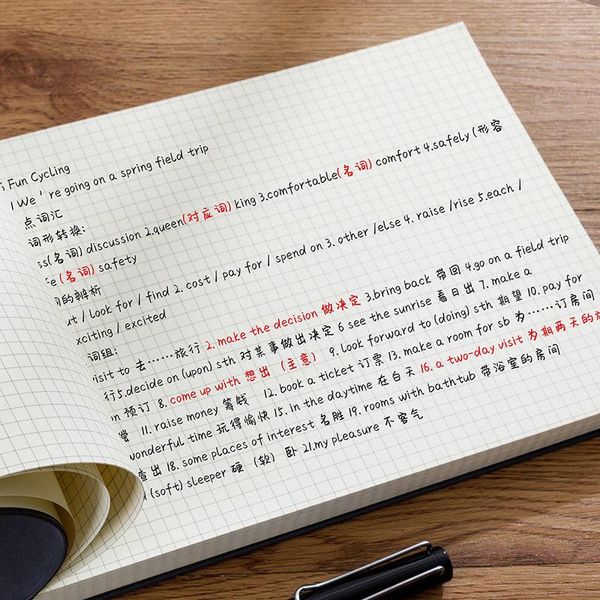 Fun Cycling
We're going on a spring field trip
点词汇
词形转换:
(名词) discussion 2.queen(对应词) king 3.comfortable(名词) comfort 4.safely (形容
(名词) safety
的辨析
/ look for / find 2. cost / pay for / spend on 3. other /else 4. raise /rise 5.each /
exciting / excited
词组:
visit to 去……旅行 2. make the decision 做决定 3.bring back 带回 4.go on a field trip
行5.decide on (upon) sth 对某事做出决定 6 see the sunrise 看日出 7. make a
预订 8. come up with 想出 (主意) 9. Look forward to (doing) sth 期望 10. pay for
11. raise money 筹钱 12. book a ticket 订票 13. make a room for sb 为……订房间
wonderful time 玩得愉快 15. in the daytime 在白天 16. a two-day visit 为期两天的
查出 18. some places of interest 名胜 19. rooms with bathtub 带浴室的房间
(soft) sleeper 硬 (软) 卧 21.my pleasure 不客气